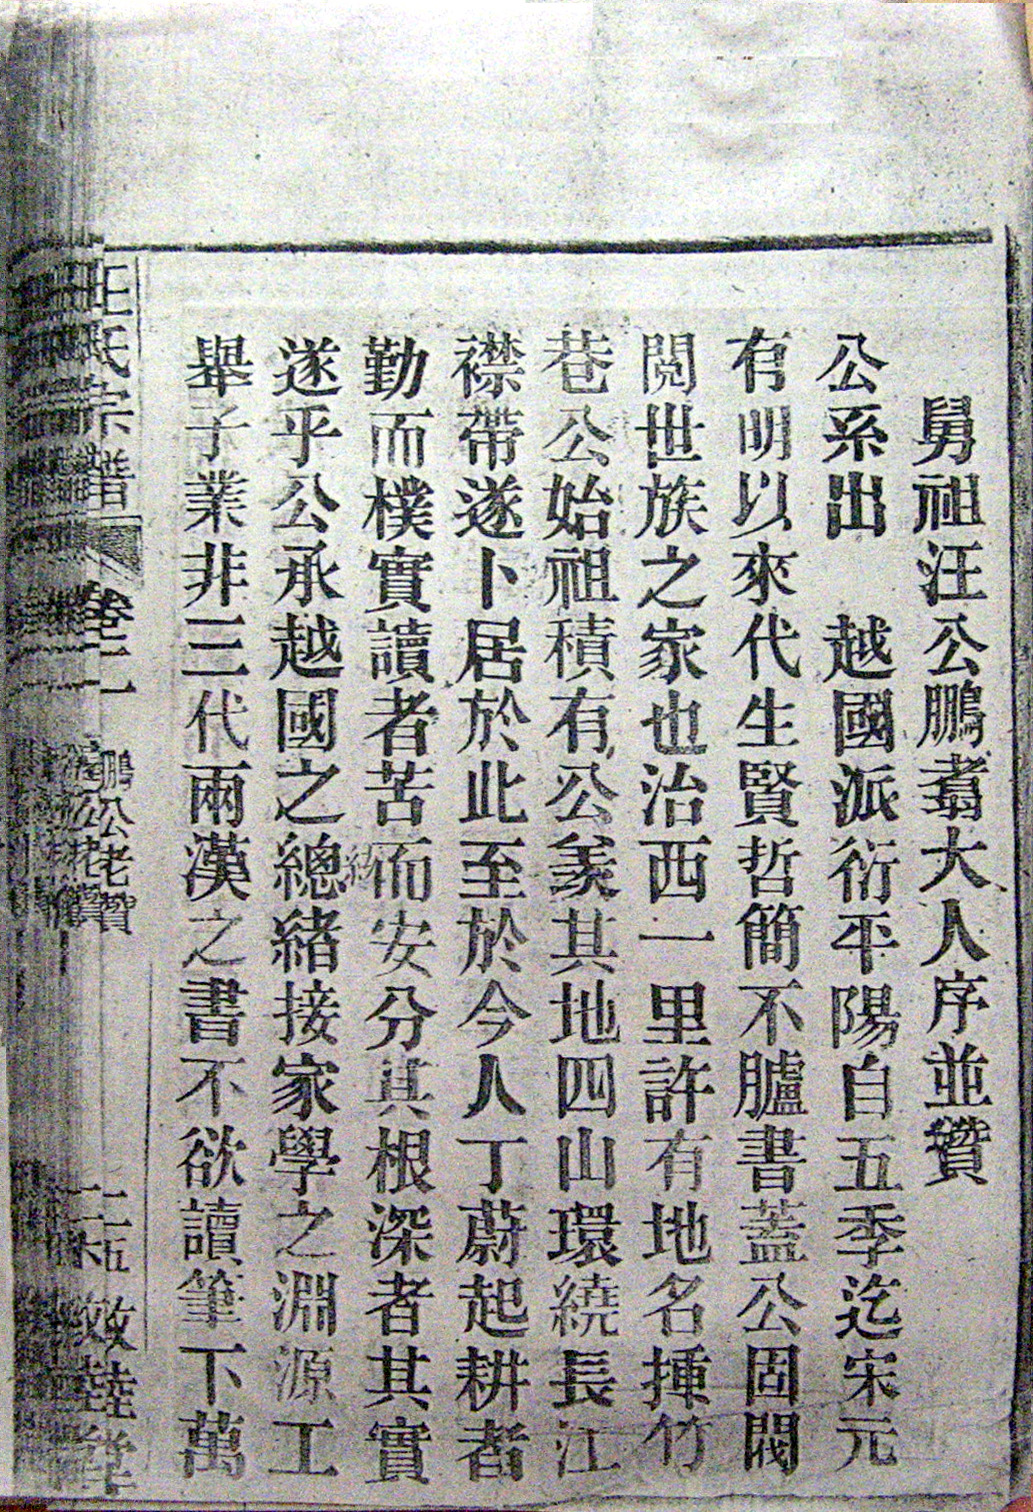 舅祖汪公鵬翥大人序並贊
公系出　越國派衍平陽自五季迄宋元
有明以來代生賢哲簡不臚書蓋公固閥
閱世族之家也治西一里許有地名揷竹
巷公始祖積有公羨其地四山環繞長江
襟帶遂卜居於此至於今人丁蔚起耕者
勤而樸實讀者苦而安分其根深者其實
遂乎公承越國之總緒接家學之淵源工
舉子業非三代兩漢之書不欲讀筆下萬
汪氏宗譜　卷二　鵬公老贊　敦睦堂